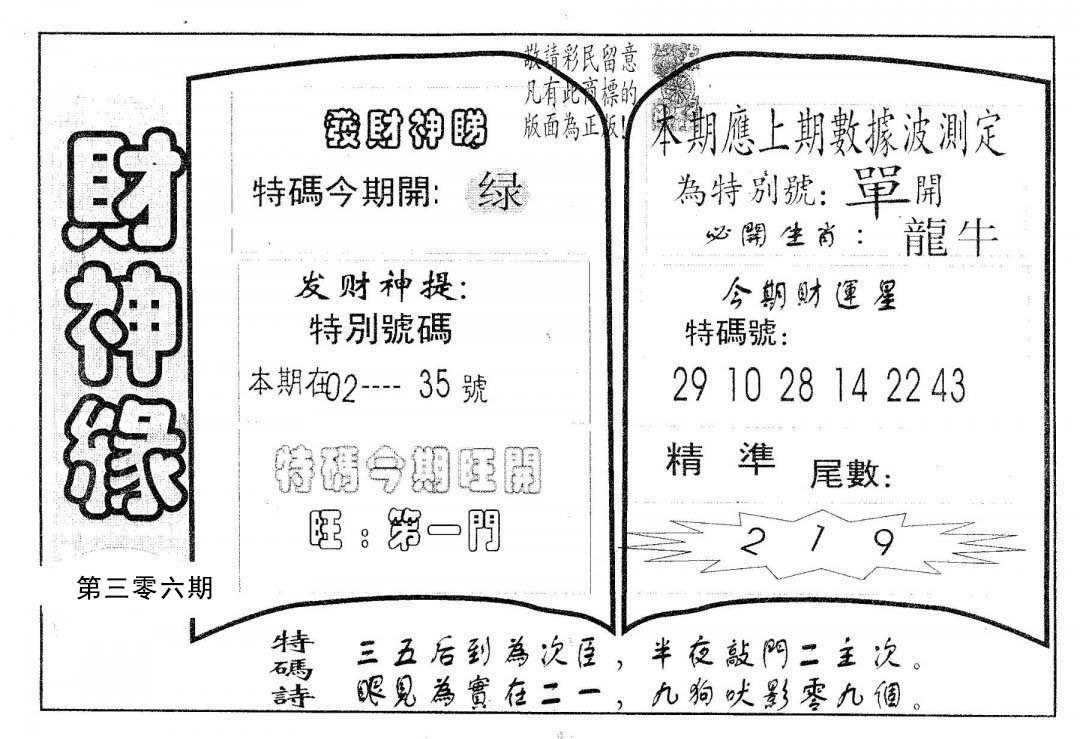 財神緣
第三零六期
敬請彩民留意
凡有此商標的
版面為正版！
發財神賜
特碼今期開：绿
发财神提：
特別號碼
本期在02----35號
特碼今期旺開
旺：第一門
本期應上期數據波測定
為特別號：單開
必開生肖：龍牛
今期財運星
特碼號：
29 10 28 14 22 43
精準 尾數：
2 1 9
特碼詩
三五后到為次臣，半夜敲門二主次。
眼見為實在二一，九狗吠影零九個。